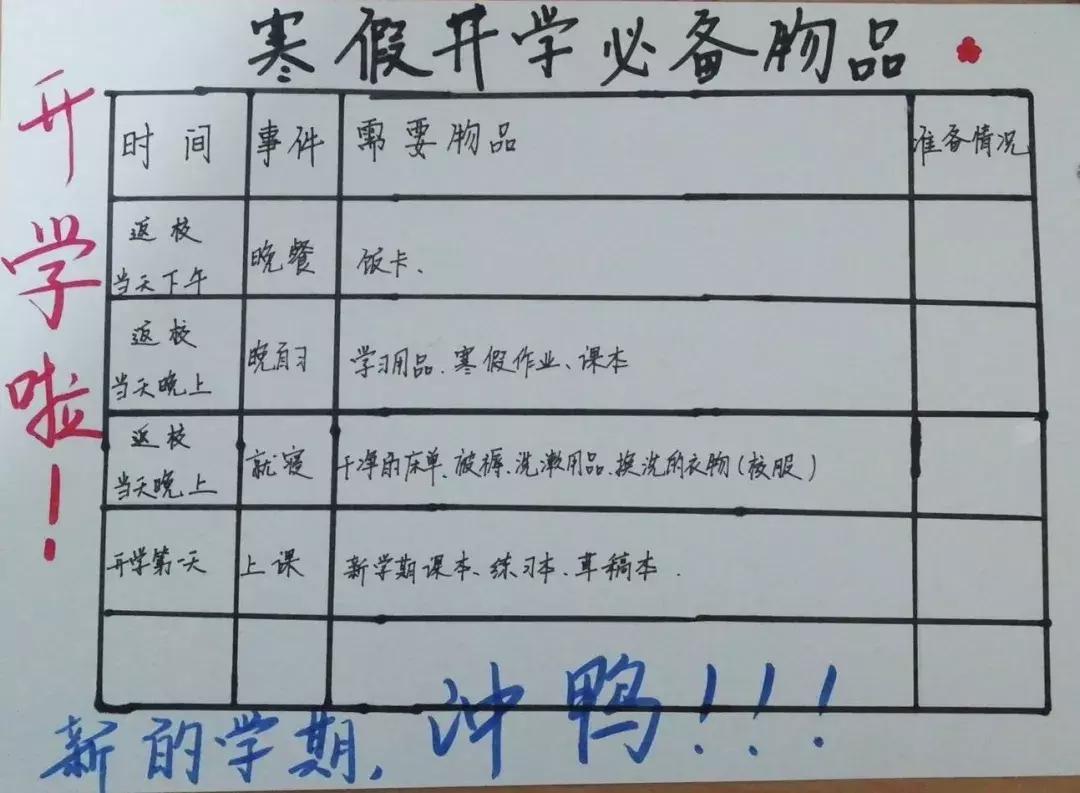 寒假开学必备物品
开学啦！
时间 事件 需要物品 准备情况
返校
当天下午 晚餐 饭卡、
返校
当天晚上 晚自习 学习用品、寒假作业、课本
返校
当天晚上 就寝 干净的床单、被褥、洗漱用品、换洗的衣物(校服)
开学第一天 上课 新学期课本、练习本、草稿本.
新的学期，冲鸭！！！